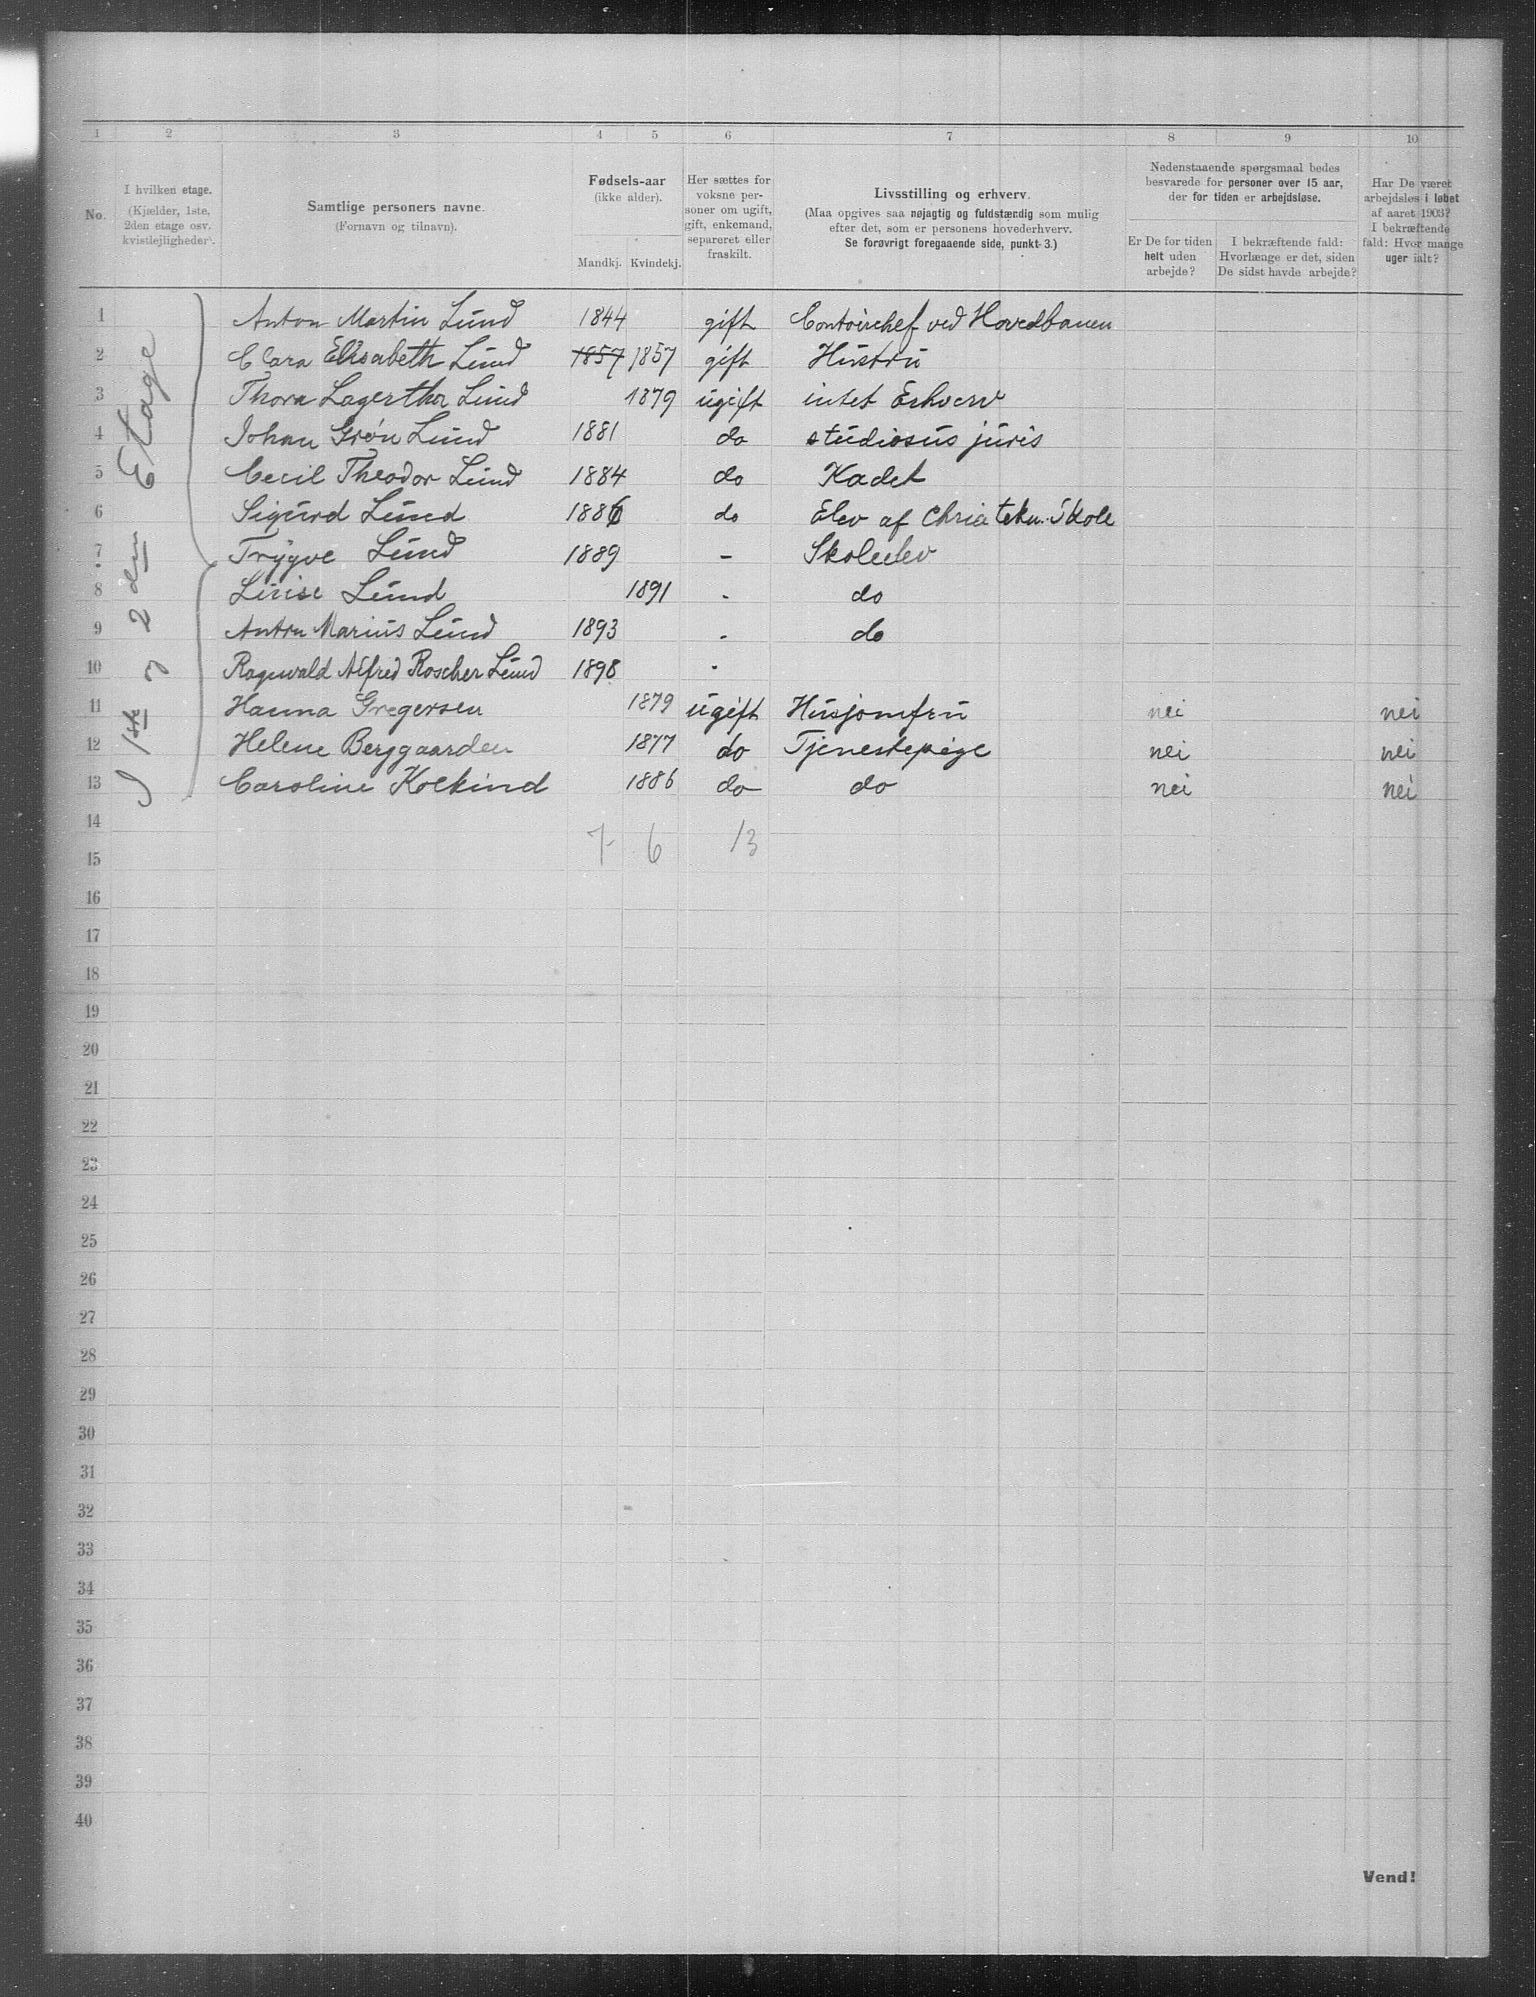 1 2 3 4 5 6 7 8 9 10
No.
I hvilken etage.
(Kjælder, 1ste,
2den etage osv.
kvistlejligheder).
Samtlige personers navne.
(Fornavn og tilnavn).
Fødsels-aar
(ikke alder).
Mandkj. Kvindekj.
Her sættes for
voksne per-
soner om ugift,
gift, enkemand,
separeret eller
fraskilt.
Livsstilling og erhverv.
(Maa opgives saa nøjagtig og fuldstændig som mulig
efter det, som er personens hovederhverv.
Se forøvrigt foregaaende side, punkt 3.)
Nedenstaaende spørgsmaal bedes
besvarede for personer over 15 aar,
der for tiden er arbejdsløse.
Er De for tiden
helt uden
arbejde?
I bekræftende fald:
Hvorlænge er det, siden
De sidst havde arbejde?
Har De været
arbejdsløs i løbet
af aaret 1903?
I bekræftende
fald: Hvor mange
uger ialt?
I 1ste og 2den Etage
1 Anton Martin Lund 1844 gift Contoirchef ved Hovedbanen
2 Clara Elisabeth Lund 1857 1857 gift Hustru
3 Thora Lagertha Lund 1879 ugift intet Erhverv
4 Johan Grøn Lund 1881 do studiosus juris
5 Cecil Theodor Lund 1884 do Kadet
6 Sigurd Lund 1886 do Elev af Chria tekn. Skole
7 Trygve Lund 1889 - Skoleelev
8 Louise Lund 1891 - do
9 Anton Marius Lund 1893 - do
10 Ragnvald Alfred Roscher Lund 1898 -
11 Hanna Gregersen 1879 ugift Husjomfru nei nei
12 Helene Berggaarden 1877 do Tjenestepige nei nei
13 Caroline Kolkind 1886 do do nei nei
14
7 6 13
15
16
17
18
19
20
21
22
23
24
25
26
27
28
29
30
31
32
33
34
35
36
37
38
39
40
Vend!